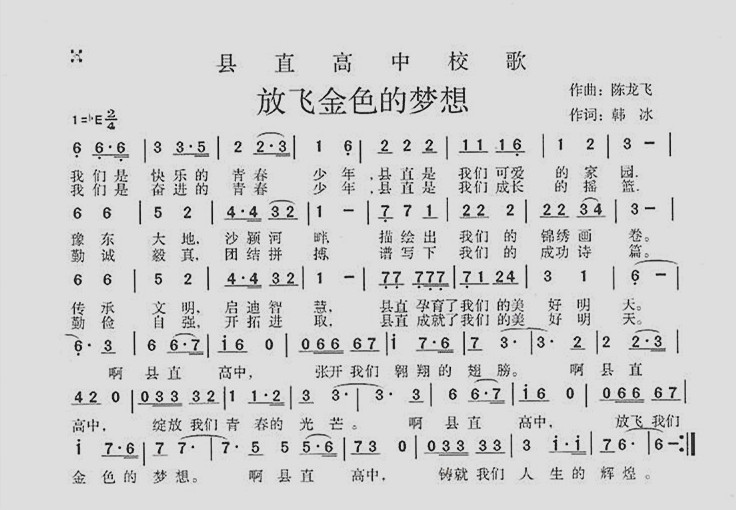 县直高中校歌
放飞金色的梦想
作曲：陈龙飞
1=♭E 2/4
作词：韩 冰
6 6·6 | 3 3·5 | 2 2·3 | 1 6 | 2 2 2 | 11 16 | 1 2 | 3 - |
我们是 快乐的 青春 少年，县直是 我们可爱 的 家 园.
我们是 奋进的 青春 少年，县直是 我们成长 的 摇 篮.
6 6 | 5 2 | 4·4 32 | 1 - | 7 7 1 | 22 2 | 22 34 | 3 - |
豫 东 大 地， 沙颍河 畔， 描绘出 我们的 锦绣画 卷。
勤 诚 毅 真， 团结拼 搏， 谱写下 我们的 成功诗 篇。
6 6 | 5 2 | 4·4 32 | 1 - | 77 777 | 7124 | 3 1 | 6 - |
传 承 文 明， 启迪智 慧， 县直孕育了我们的美 好 明 天。
勤 俭 自 强， 开拓进 取， 县直成就了我们的美 好 明 天。
6· 3 | 6 6·7 | i6 0 | 0666 67 | i 7·6 | 7 3· | 3· 2 | 2 2·3 |
啊 县直 高中， 张开我们 翱翔的 翅 膀。 啊 县直
42 0 | 033 32 | 1 1·2 | 3 3· | 3· 6 | 6 6·7 | i6 0 | 066 67 |
高中， 绽放我们 青春的 光 芒。 啊 县直 高中， 放飞我们
i 7·6 | 7 7· | 7· 5 | 5 5·6 | 73 0 | 033 33 | 3 i·i | 76· | 6 - :||
金色的 梦想。 啊县直 高中， 铸就我们 人生的 辉煌。